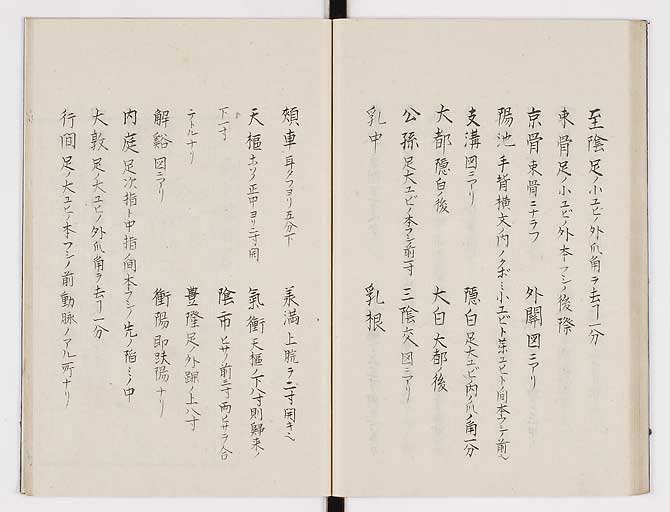 至陰 足ノ小ユビノ外爪角ヲ去ヿ一分
束骨 足ノ小ユビノ外本フシノ後際
京骨 束骨ニナラフ 外關 図ニアリ
陽池 手背横文ノ内ノクボミ小ユビト薬ユビト間本フシノ前へ
支溝 図ニアリ 隠白 足大ユビノ内ノ爪ノ角一分
大都 隠白ノ後 大白 大都ノ後
公孫 足大ユビノ本フシノ前一寸 三陰交 図ニアリ
乳中 乳根
頬車 耳タフヨリ五分下 美満 上脘ヲ二寸開キ
天樞 ホソノ正中ヨリ二寸開 氣衝 天樞ノ下八寸則歸来ノ
下一寸 陰市 ヒサノ前三寸両ヒサヲ合
テトルナリ 豊隆 足外踝ノ上八寸
解谿 図ニアリ 衝陽 即趺陽ナリ
内庭 足次指ト中指ノ間本フシノ先ノ陥ミノ中
大敦 足ノ大ユビノ外爪角ヲ去ヿ一分
行間 足ノ大ユビノ本フシノ前動脉ノアル所ナリ